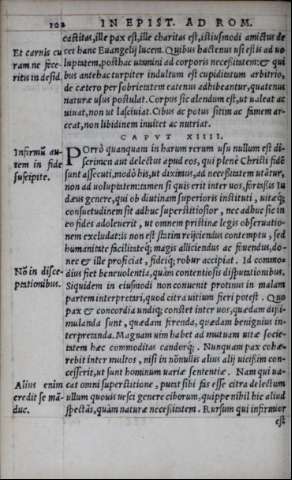 102 IN EPIST. AD ROM.
castitas, ille pax est, ille charitas est, istiusmodi amictus de
cet hanc Euangelij lucem. Quibus hactenus usi estis ad uo
luptatem, posthac utimini ad corporis necessitatem: & qui
bus antehac turpiter indultum est cupiditatum arbitrio,
de cætero per sobrietatem eatenus adhibeantur, quatenus
naturæ usus postulat. Corpus sic alendum est, ut ualeat ac
uiuat, non ut lasciuiat. Cibus ac potus sitim ac famem ar-
ceat, non libidinem inuitet ac nutriat.
CAPVT XIIII.
PORRÒ quanquam in harum rerum usu nullum est di-
scrimen aut delectus apud eos, qui plenè Christi fidẽ
sunt assecuti, modò his, ut diximus, ad necessitatem utãtur,
non ad uoluptatem: tamen si quis erit inter uos, fortassis Iu
dæus genere, qui ob diutinam superioris instituti, uitæq;
consuetudinem sit adhuc superstitiosior, nec adhuc sic in
eo fides adoleuerit, ut omnem pristinæ legis obseruatio-
nem excludat: is non est statim reijciendus contemptu, sed
humanitate facilitateq; magis alliciendus ac fouendus, do-
nec & ille proficiat, fideiq; robur accipiat. Id commo-
dius fiet beneuolentia, quàm contentiosis disputationibus.
Siquidem in eiusmodi non conuenit protinus in malam
partem interpretari, quod citra uitium fieri potest. Quo
pax & concordia undiq; constet inter uos, quædam dissi-
mulanda sunt, quædam ferenda, quædam benignius in-
terpretanda. Magnam uim habet ad mutuam uitæ socie-
tatem hæc commoditas candorq;. Nunquam pax cohæ-
rebit inter multos, nisi in nõnullis alius alij uicissim con-
cesserit, ut sunt hominum uariæ sententiæ. Nam qui ua-
cat omni superstitione, putat sibi fas esse citra delectum
ullum quouis uesci genere ciborum, quippe nihil hic aliud
spectãs, quàm naturæ necessitatem. Rursum qui infirmior
est
Et carnis cu
ram ne fece-
ritis in desid.
Infirmũ au-
tem in fide
suscipite.
Nõ in disce-
ptationibus.
Alius enim
credit se mã-
duc.